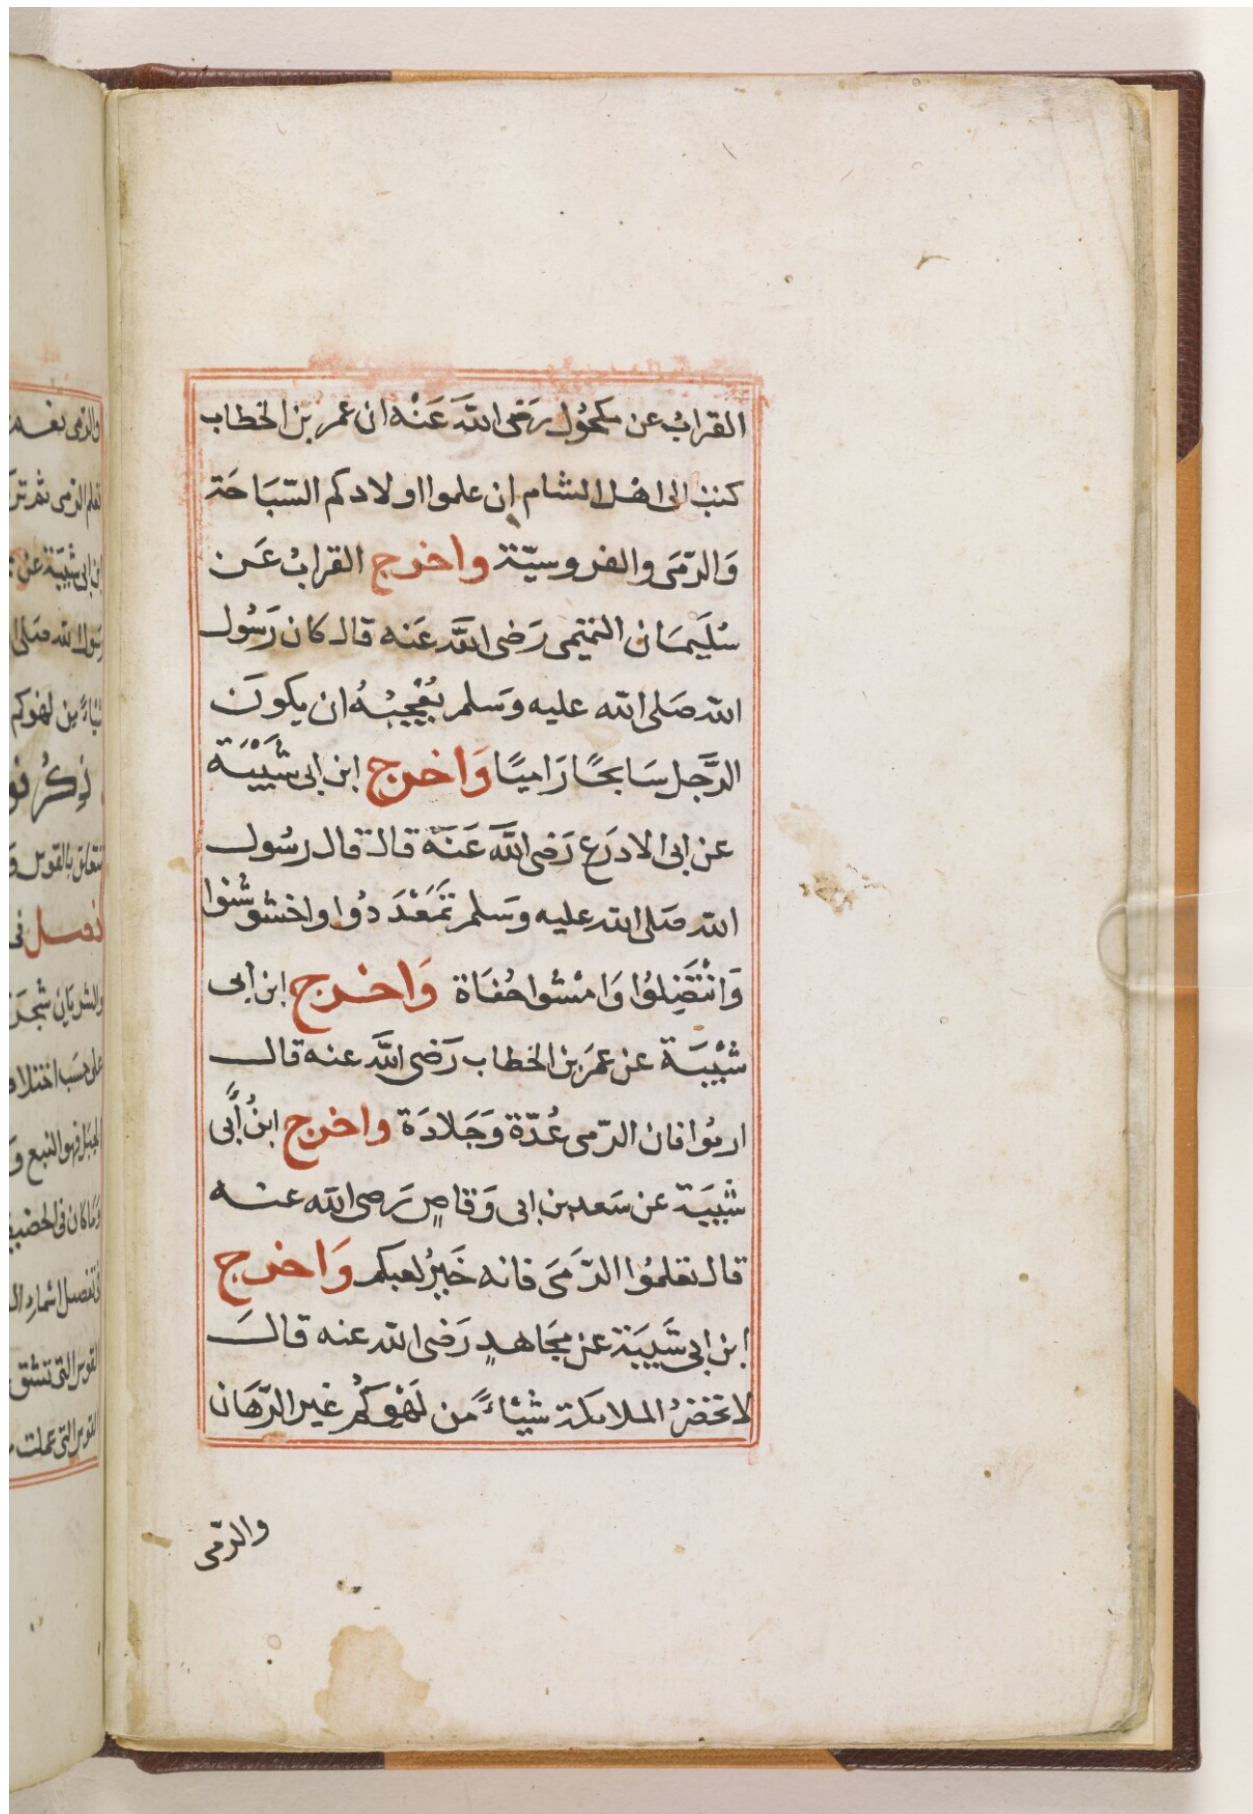 القرابُ عن مكحُول رَضى اللهَ عَنْه ان عمر بن الخطاب
كتب الى اهل الشام ان علموا اولادكم السّبَاحَة
وَالرّمَى والفروسيّة واخرج القرابُ عَن
سُلَيمَان التميتمى رَضى اللهَ عَنه قال كان رَسُول
الله صَلى الله عليه وسَلم يُعْجِبُهُ ان يكونَ
الرَّجل سَابحًا رَاميًا وَاخرج ابن ابى شَيْبَة
عن ابى الادرَع رَضى اللهَ عَنَهْ قال قال رسُول
الله صَلى الله عليه وسَلم تَمَعْدَدُوا واخشوشنُوا
وَانْتَضِلُوا وَامْشُوا حُفَاة وَاخرج ابن ابى
شَيْبَة عن عمَر بن الخطاب رَضى اللهَ عنه قال
ارمُوا فان الرّمى عُدّة وَجَلادَة واخرج ابنُ أبى
شيبَة عن سَعد بن ابى وَقاصٍ رَضى الله عنه
قال تعلمُوا الرّمَىَ فانه خَيرُ لعبكم وَاخرج
ابن ابى شَيبَة عن مجَاهدٍ رَضى الله عنه قالَ
لا تحضرُ الملايكة شيْاءً من لَهْوِكُم غير الرّهَان
والرّمى
والرّمى
تعلم الرّمى ثم
ابن ابى شَيْبَة عن
رَسُول الله صَلى
من لهوكم
ذِكْرُ
بالقوس
فصل